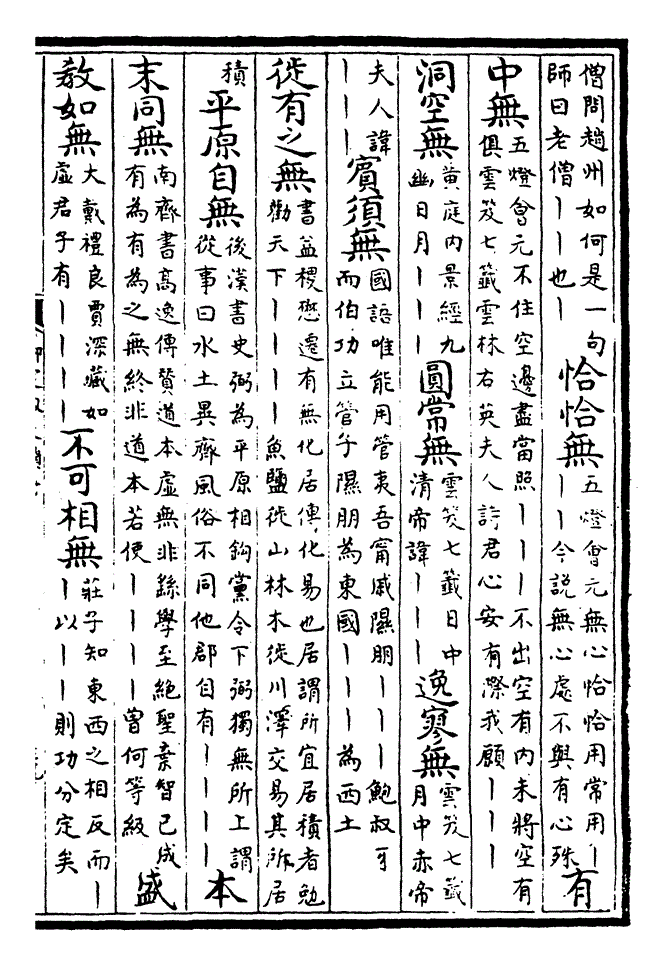 僧問趙州如何是一句
師曰老僧〡〡也〡
恰恰無
五燈會元無心恰恰用常用〡
〡〡今説無心處不與有心殊
有
中無
五燈會元不住空邊盡當照〡〡〡不出空有内未將空有
俱雲笈七籤雲林右英夫人詩君心安有際我願〡〡〡
洞空無
黄庭内景經九
幽日月〡〡〡
圓常無
雲笈七籤日中
清帝諱〡〡〡
逸寥無
雲笈七籤
月中赤帝
夫人諱
〡〡〡
賓須無
國語唯能用管夷吾甯戚隰朋〡〡〡鮑叔牙
而伯功立管子隰朋為東國〡〡〡為西土
徙有之無
書益稷懋遷有無化居傳化易也居謂所宜居積者勉
勸天下〡〡〡〡魚鹽徙山林木徙川澤交易其所居
積
平原自無
後漢書史弼為平原相鈎黨令下弼獨無所上謂
從事曰水土異齊風俗不同他郡自有〡〡〡〡
本
末同無
南齊書高逸傳贊道本虛無非繇學至絶聖棄智已成
有為有為之無終非道本若使〡〡〡〡曽何等級
盛
教如無
大戴禮良賈深藏如
虛君子有〡〡〡〡
不可相無
莊子知東西之相反而〡
〡以〡〡則功分定矣